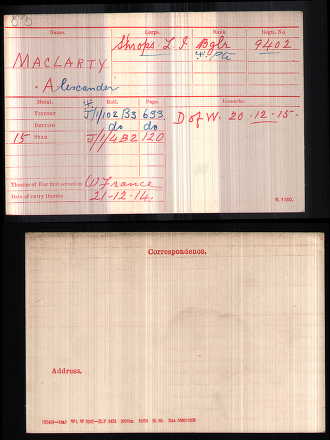 Name. Corps. Rank. Regtl. No.
MACLARTY Shrops. L. I. Bglr 9402
Pte
Alexander
Medal. Roll. Page. Remarks.
Victory J/1/102 B3 693. D of W. 20-12-15.
British do do
15 Star J/1/4 B2 120
Theatre of War first served in W France
Date of entry therein 21-12-14.
K. 1380.
Correspondence.
Address.